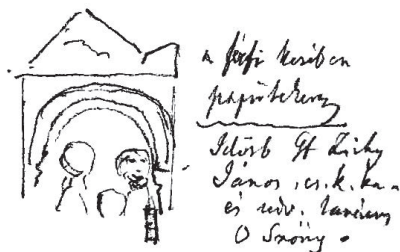 a férfi kezében
papirtekercs
Idősb Gf Zichy
János, cs. k. ka-
és udv. tanácsos
O Szőny.